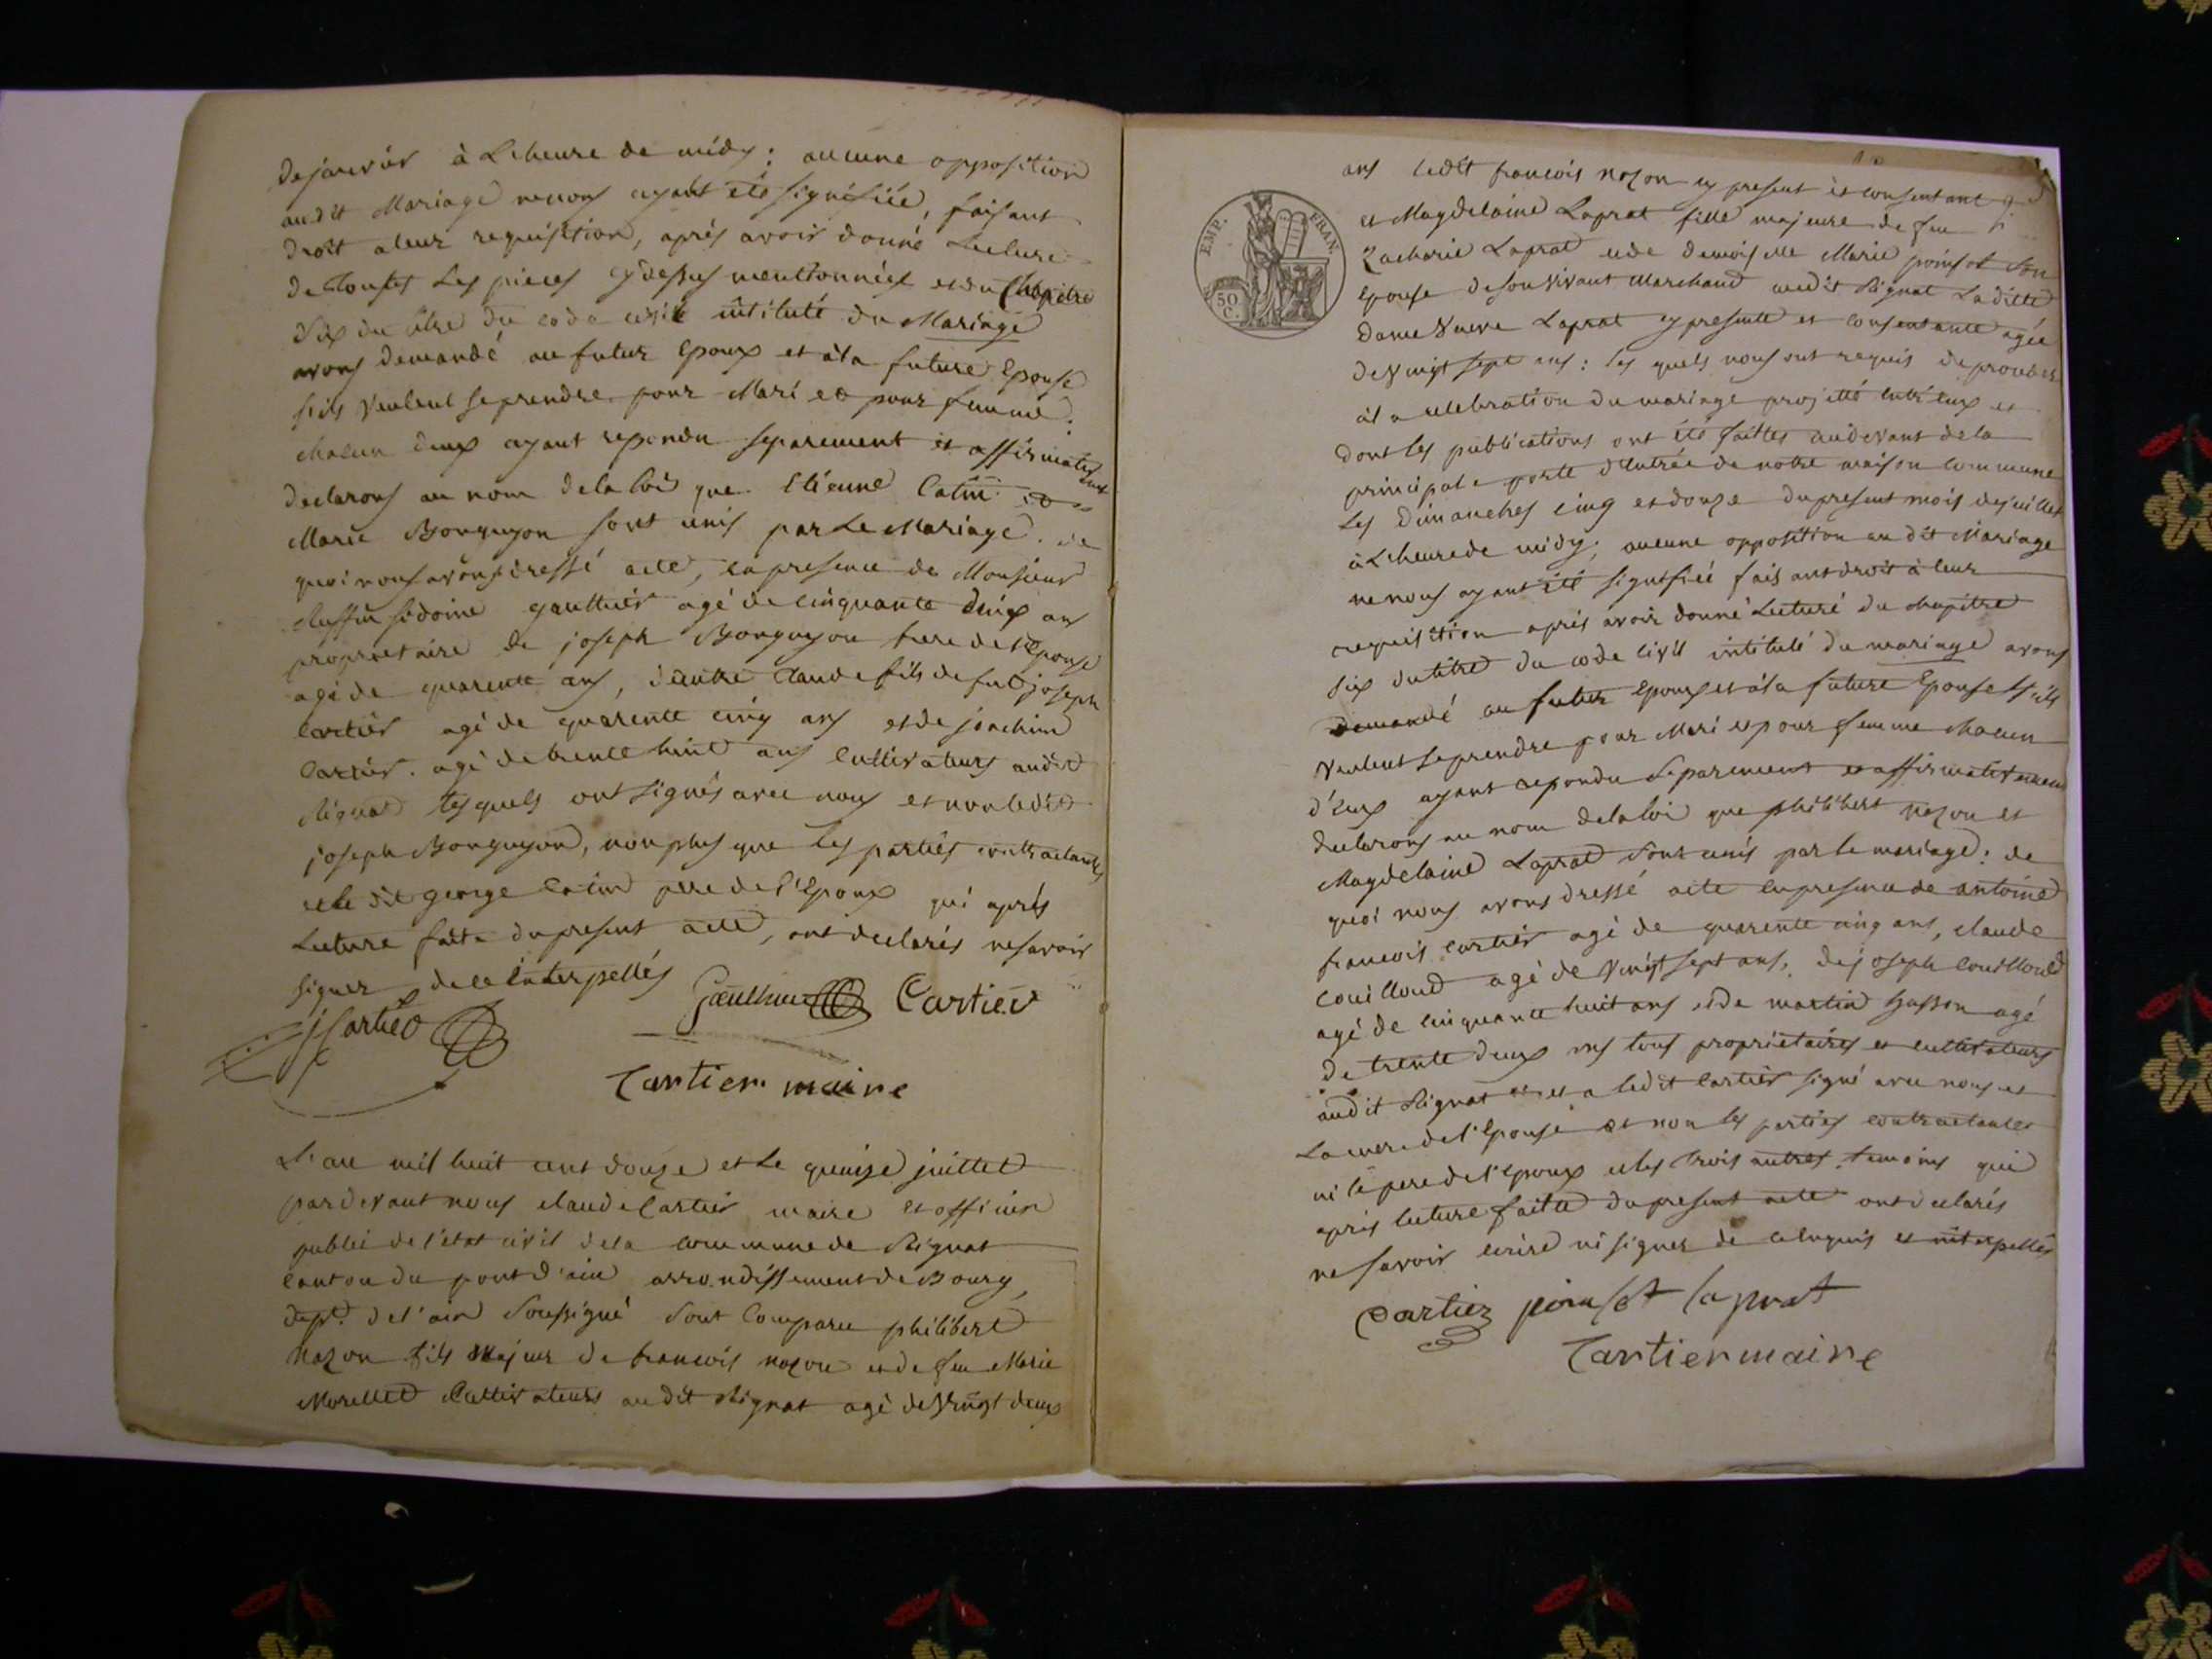 de janvier à Lheure de midy: aucune opposition
audit Mariage ne nous ayant été signifiée, faisant
droit a leur requisition, aprés avoir donné Lecture
de Toutes Les pieces cy dessus mentionnées et du Chapitre
Six du titre du code civil intitulé du Mariage
avons demandé au futur Epoux et à la future Epouse
s'ils veulent se prendre pour Mari et pour femme:
chacun deux ayant repondu separement et affirmativement
declarons au nom de la loi que Etienne Catin et
Marie Bonguyon sont unis par Le Mariage. de
quoi nous avons dressé acte, en presence de Monsieur
Ruffin sidoine gaulthier agé de cinquante deux ans
proprietaire de joseph Bonguyon frere de l'Epouse
agé de quarente ans, d'autre Claude fils de feu joseph
Cartier agé de quarente cinq ans et de joachim
Cartier. agé de trente huit ans Cultivateurs audit
Rignat lesquels ont signés avec nous et non ledit
joseph Bonguyon, non plus que les parties contractantes
et le dit george Catin pere de l'Epoux qui aprés
Lecture faite du present acte, ont declarés ne savoir
signer de ce interpellés
Gaulthier Cartier
J Cartier
Cartier maire
L'an mil huit cent douze et Le quinze juillet
pardevant nous claude Cartier maire et officier
public de l'etat civil de la commune de Rignat
canton du pont d'ain arrondissement de Bourg,
dept. de l'ain Soussigné Sont Comparu philibert
Nozon fils Majeur de francois nozon et de feu Marie
Morellet Cultivateurs au dit Rignat agé de vingt deux
ans ledit francois nozon cy present et consentant
et Magdelaine Laprat fille majeure de feu
Zacharie Laprat et de demoiselle Marie poinset Son
Epouse de son vivant Marchand audit Rignat La ditte
Dame Veuve Laprat cy presente et consentante agée
de vingt sept ans: les quels nous ont requis de proceder
à la celebration du mariage projetté entr'eux et
dont les publications ont été faittes audevant de la
principale porte d'Entrée de notre maison commune
Les Dimanches cinq et douze du present mois de juillet
à Lheure de midy; aucune opposition au dit Mariage
ne nous ayant été signifiée faisant droit à leur
requisition aprés avoir donné Lecture du chapitre
six du titre du code civil intitulé du mariage avons
demandé au futur Epoux et à la future Epouse s'ils
veulent se prendre pour Mari et pour femme chacun
d'eux ayant repondu Separement et affirmativement
declarons au nom de la loi que philibert nozon et
Magdelaine Laprat sont unis par le mariage: de
quoi nous avons dressé acte en presence de antoine
francois Cartier agé de quarente cinq ans, claude
Couilloud agé de vingt sept ans, de joseph Couilloud
agé de cinquante huit ans et de martin gasson agé
de trente deux ans tous propriétaires et cultivateurs
audit Rignat et a ledit Cartier signé avec nous et
La mere de l'Epouse et non les parties contractantes
ni le pere de l'Epoux et les trois autres temoins qui
aprés lecture faitte du present acte ont declarés
ne savoir ecrire ni signer de ce enquis et interpellés
Cartier poinset laprat
Cartier maire
EMP. FRAN.
50
C.